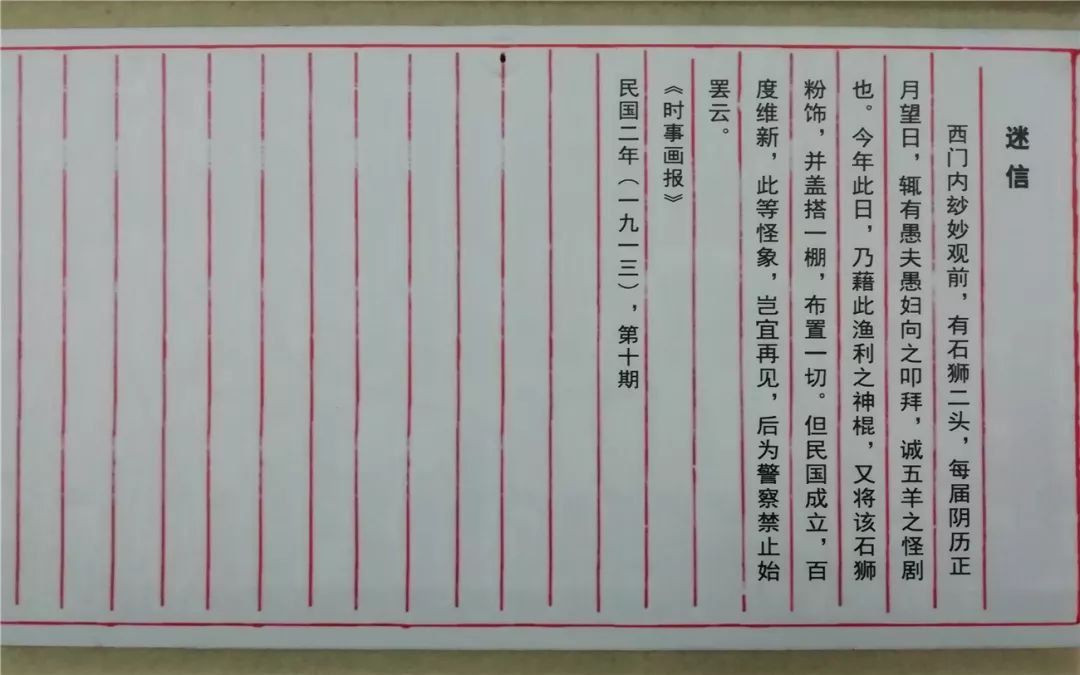 迷信
西门内玅妙观前，有石狮二头，每届阴历正
月望日，辄有愚夫愚妇向之叩拜，诚五羊之怪剧
也。今年此日，乃藉此渔利之神棍，又将该石狮
粉饰，并盖搭一棚，布置一切。但民国成立，百
度维新，此等怪象，岂宜再见，后为警察禁止始
罢云。
《时事画报》
民国二年（一九一三），第十期